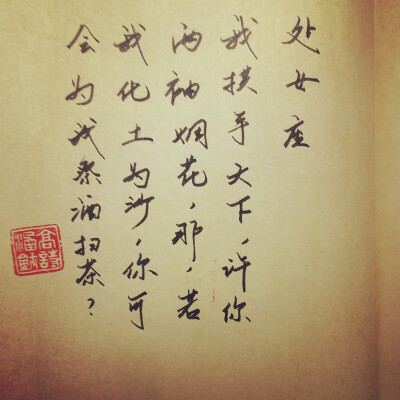 处女座
我拱手天下,许你
两袖烟花,那,若
我化土为沙,你可
会为我祭酒扫茶?